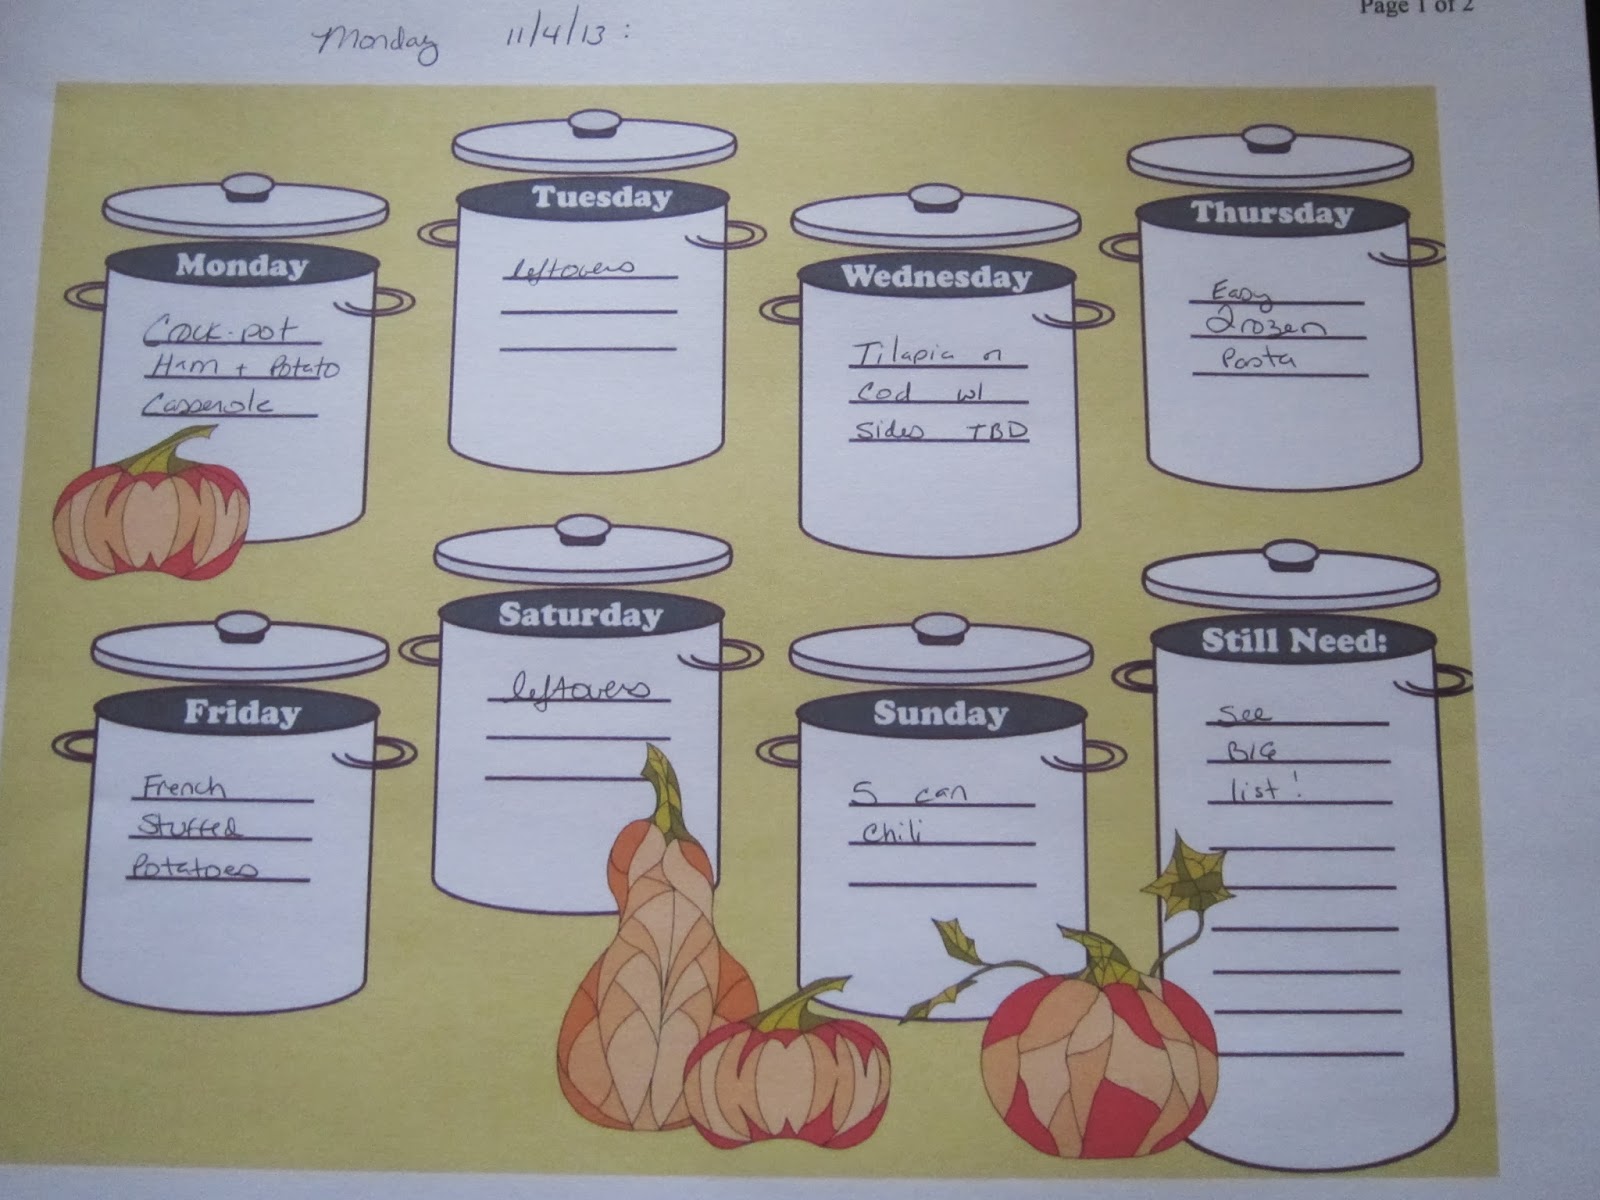 Page 1 of 2
Monday 11/4/13:
Monday
Crock-pot
Ham + Potato
Casserole
Tuesday
leftovers
Wednesday
Tilapia or
Cod w/
Sides TBD
Thursday
Easy
Frozen
Pasta
Friday
French
Stuffed
Potatoes
Saturday
leftovers
Sunday
5 can
Chili
Still Need:
See
BIG
list!